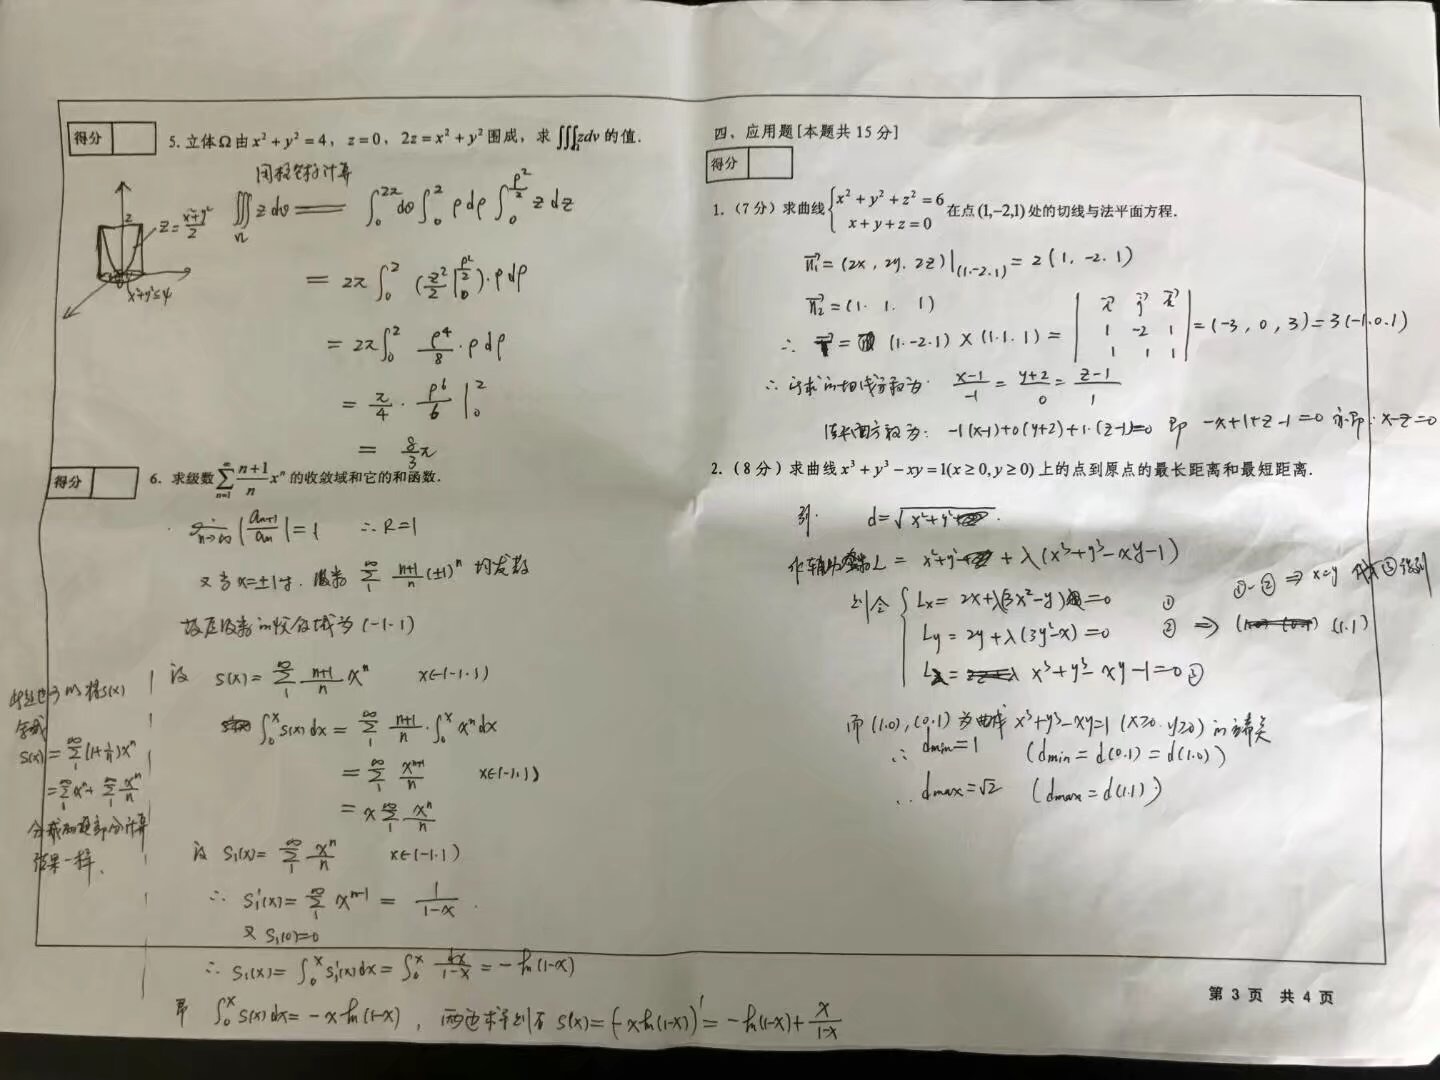 得分
5.立体Ω由x²+y²=4, z=0, 2z=x²+y²围成, 求∭_Ω zdv的值.
用柱坐标计算
z=(x²+y²)/2
2
x²+y²≤4
∭_Ω z dv = ∫₀^{2π}dθ∫₀²ρdρ∫₀^{ρ²/2} z dz
= 2π∫₀²(z²/2|₀^{ρ²/2})·ρdρ
= 2π∫₀² ρ⁴/8·ρdρ
= π/4·ρ⁶/6|₀²
= 8/3π
得分
6. 求级数∑_{n=1}^∞ (n+1)/n xⁿ的收敛域和它的和函数.
lim_{n→∞}|a_{n+1}/a_n|=1 ∴R=1
又当x=±1时, 级数∑₁^∞ (n+1)/n (±1)ⁿ 均发散
故原级数的收敛域为(-1·1)
设 S(x)=∑₁^∞ (n+1)/n xⁿ x∈(-1·1)
∫₀ˣS(x)dx=∑₁^∞ (n+1)/n·∫₀ˣxⁿdx
=∑₁^∞ x^{n+1}/n x∈(-1·1)
=x∑₁^∞ xⁿ/n
设 S₁(x)=∑₁^∞ xⁿ/n x∈(-1·1)
∴ S₁'(x)=∑₁^∞ x^{n-1} = 1/(1-x).
又 S₁(0)=0
∴ S₁(x)=∫₀ˣS₁'(x)dx=∫₀ˣ dx/(1-x) = -ln(1-x)
即 ∫₀ˣS(x)dx=-xln(1-x), 两边求导则有 S(x)=(-xln(1-x))'=-ln(1-x)+x/(1-x)
此题也可以将S(x)
S(x)=∑₁^∞(1+1/n)xⁿ
=∑₁^∞xⁿ+∑₁^∞ xⁿ/n
分成两部分计算
结果一样.
四、应用题[本题共15分]
得分
1.(7分)求曲线{x²+y²+z²=6 x+y+z=0 在点(1,-2,1)处的切线与法平面方程.
n₁=(2x, 2y, 2z)|_{(1·-2·1)}=2(1, -2, 1)
n₂=(1·1·1)
∴ T = (1·-2·1)×(1·1·1)=|i j k; 1 -2 1; 1 1 1|=(-3, 0, 3)=3(-1·0·1)
∴所求的切线方程为: (x-1)/-1=(y+2)/0=(z-1)/1
法平面方程为: -1(x-1)+0(y+2)+1·(z-1)=0 即 -x+1+z-1=0 亦即: x-z=0
2.(8分)求曲线x³+y³-xy=1(x≥0,y≥0)上的点到原点的最长距离和最短距离.
d=√(x²+y²).
作辅助函数L = x²+y² + λ(x³+y³-xy-1)
则令 {Lx=2x+λ(3x²-y)=0 ①
Ly=2y+λ(3y²-x)=0 ② ⇒ (1·1)
①-②⇒x=y 代入③得到
x³+y³-xy-1=0 ③
而(1·0), (0·1)为曲线x³+y³-xy=1 (x≥0·y≥0)的端点
∴ dmin=1 (dmin=d(0·1)=d(1·0))
∴ dmax=√2 (dmax=d(1·1))
第 3 页 共 4 页